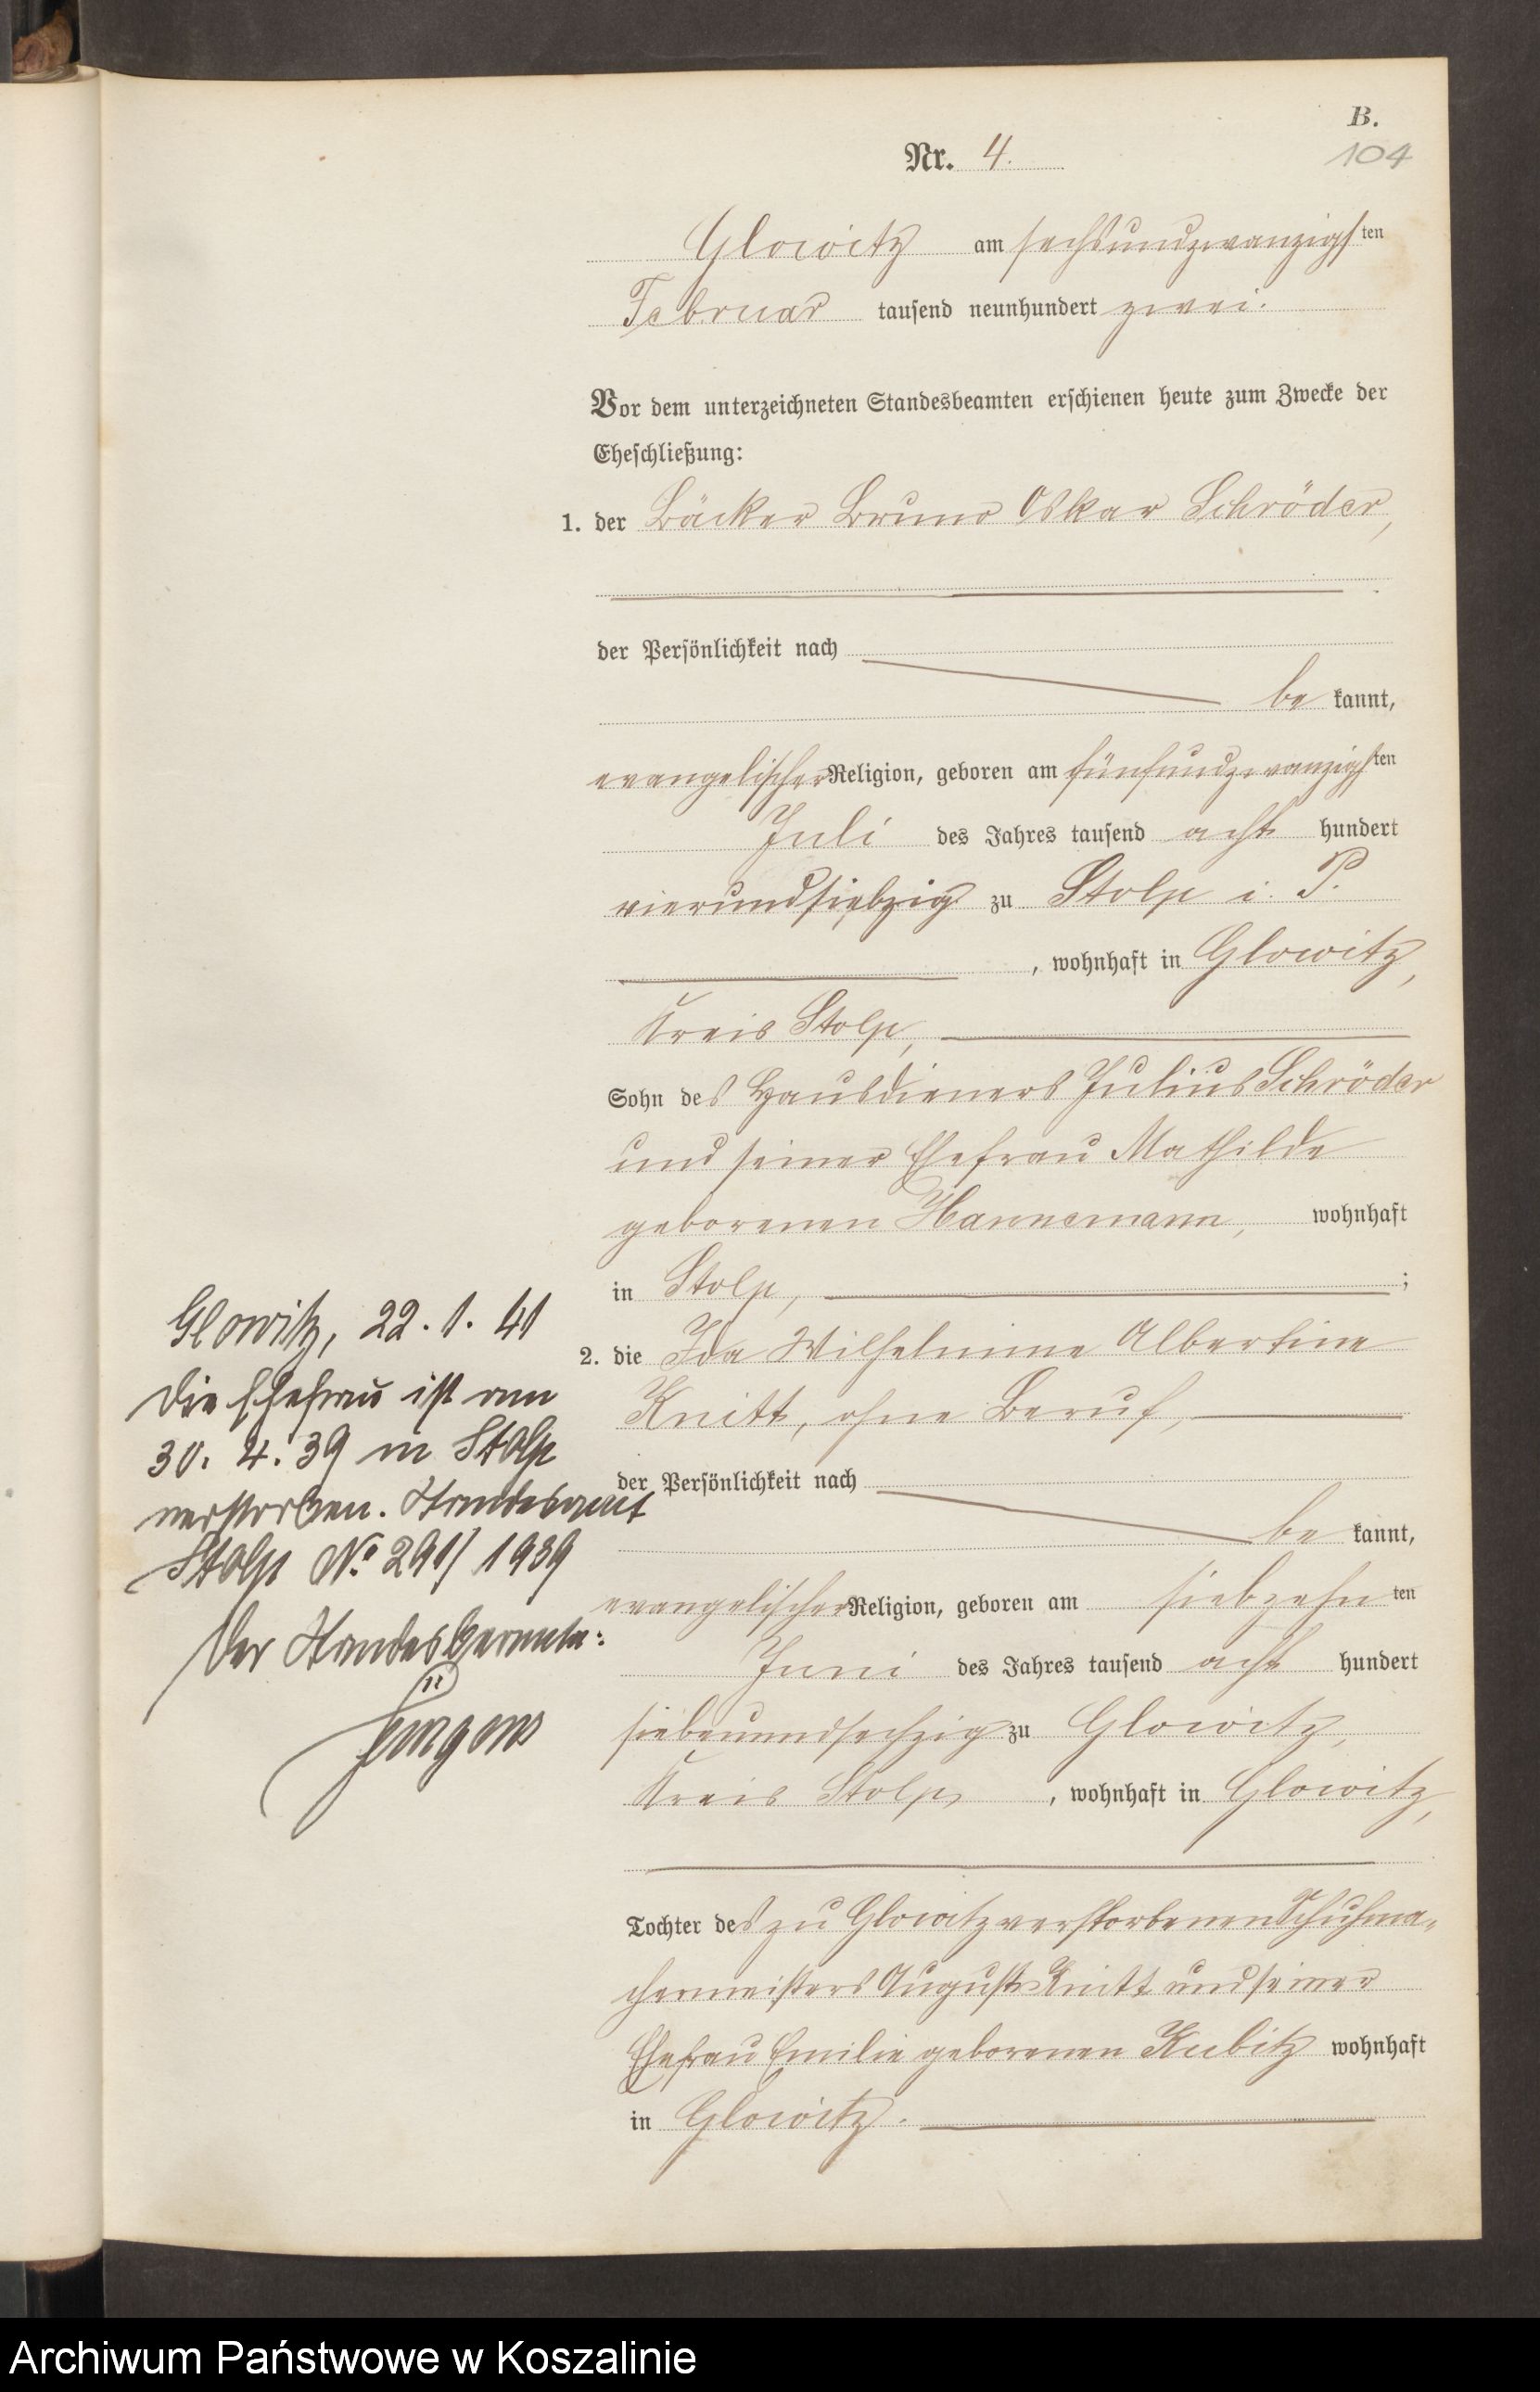 B.
104
Nr. 4.
Glowitz am sechsundzwanzigsten
Februar tausend neunhundert zwei.
Vor dem unterzeichneten Standesbeamten erschienen heute zum Zwecke der
Eheschließung:
1. der Bäcker Bruno Oskar Schröder,
der Persönlichkeit nach
be kannt,
evangelischer Religion, geboren am fünfundzwanzigsten
Juli des Jahres tausend acht hundert
vierundsiebzig zu Stolp i. P.
, wohnhaft in Glowitz,
Kreis Stolp,
Sohn des Hausdieners Julius Schröder
und seiner Ehefrau Mathilde
geborenen Hannemann, wohnhaft
in Stolp, ;
2. die Ida Wilhelmine Albertine
Knitt, ohne Beruf,
der Persönlichkeit nach
be kannt,
evangelischer Religion, geboren am siebzehnten
Juni des Jahres tausend acht hundert
siebenundsechzig zu Glowitz,
Kreis Stolp, , wohnhaft in Glowitz,
Tochter des zu Glowitz verstorbenen Schuhma-
chermeisters August Knitt und seiner
Ehefrau Emilie geborenen Kubitz wohnhaft
in Glowitz.
Glowitz, 22. 1. 41
Die Ehefrau ist am
30. 4. 39 in Stolp
verstorben. Standesamt
Stolp No 291/1939
Der Standesbeamte:
Jürgens
Archiwum Państwowe w Koszalinie